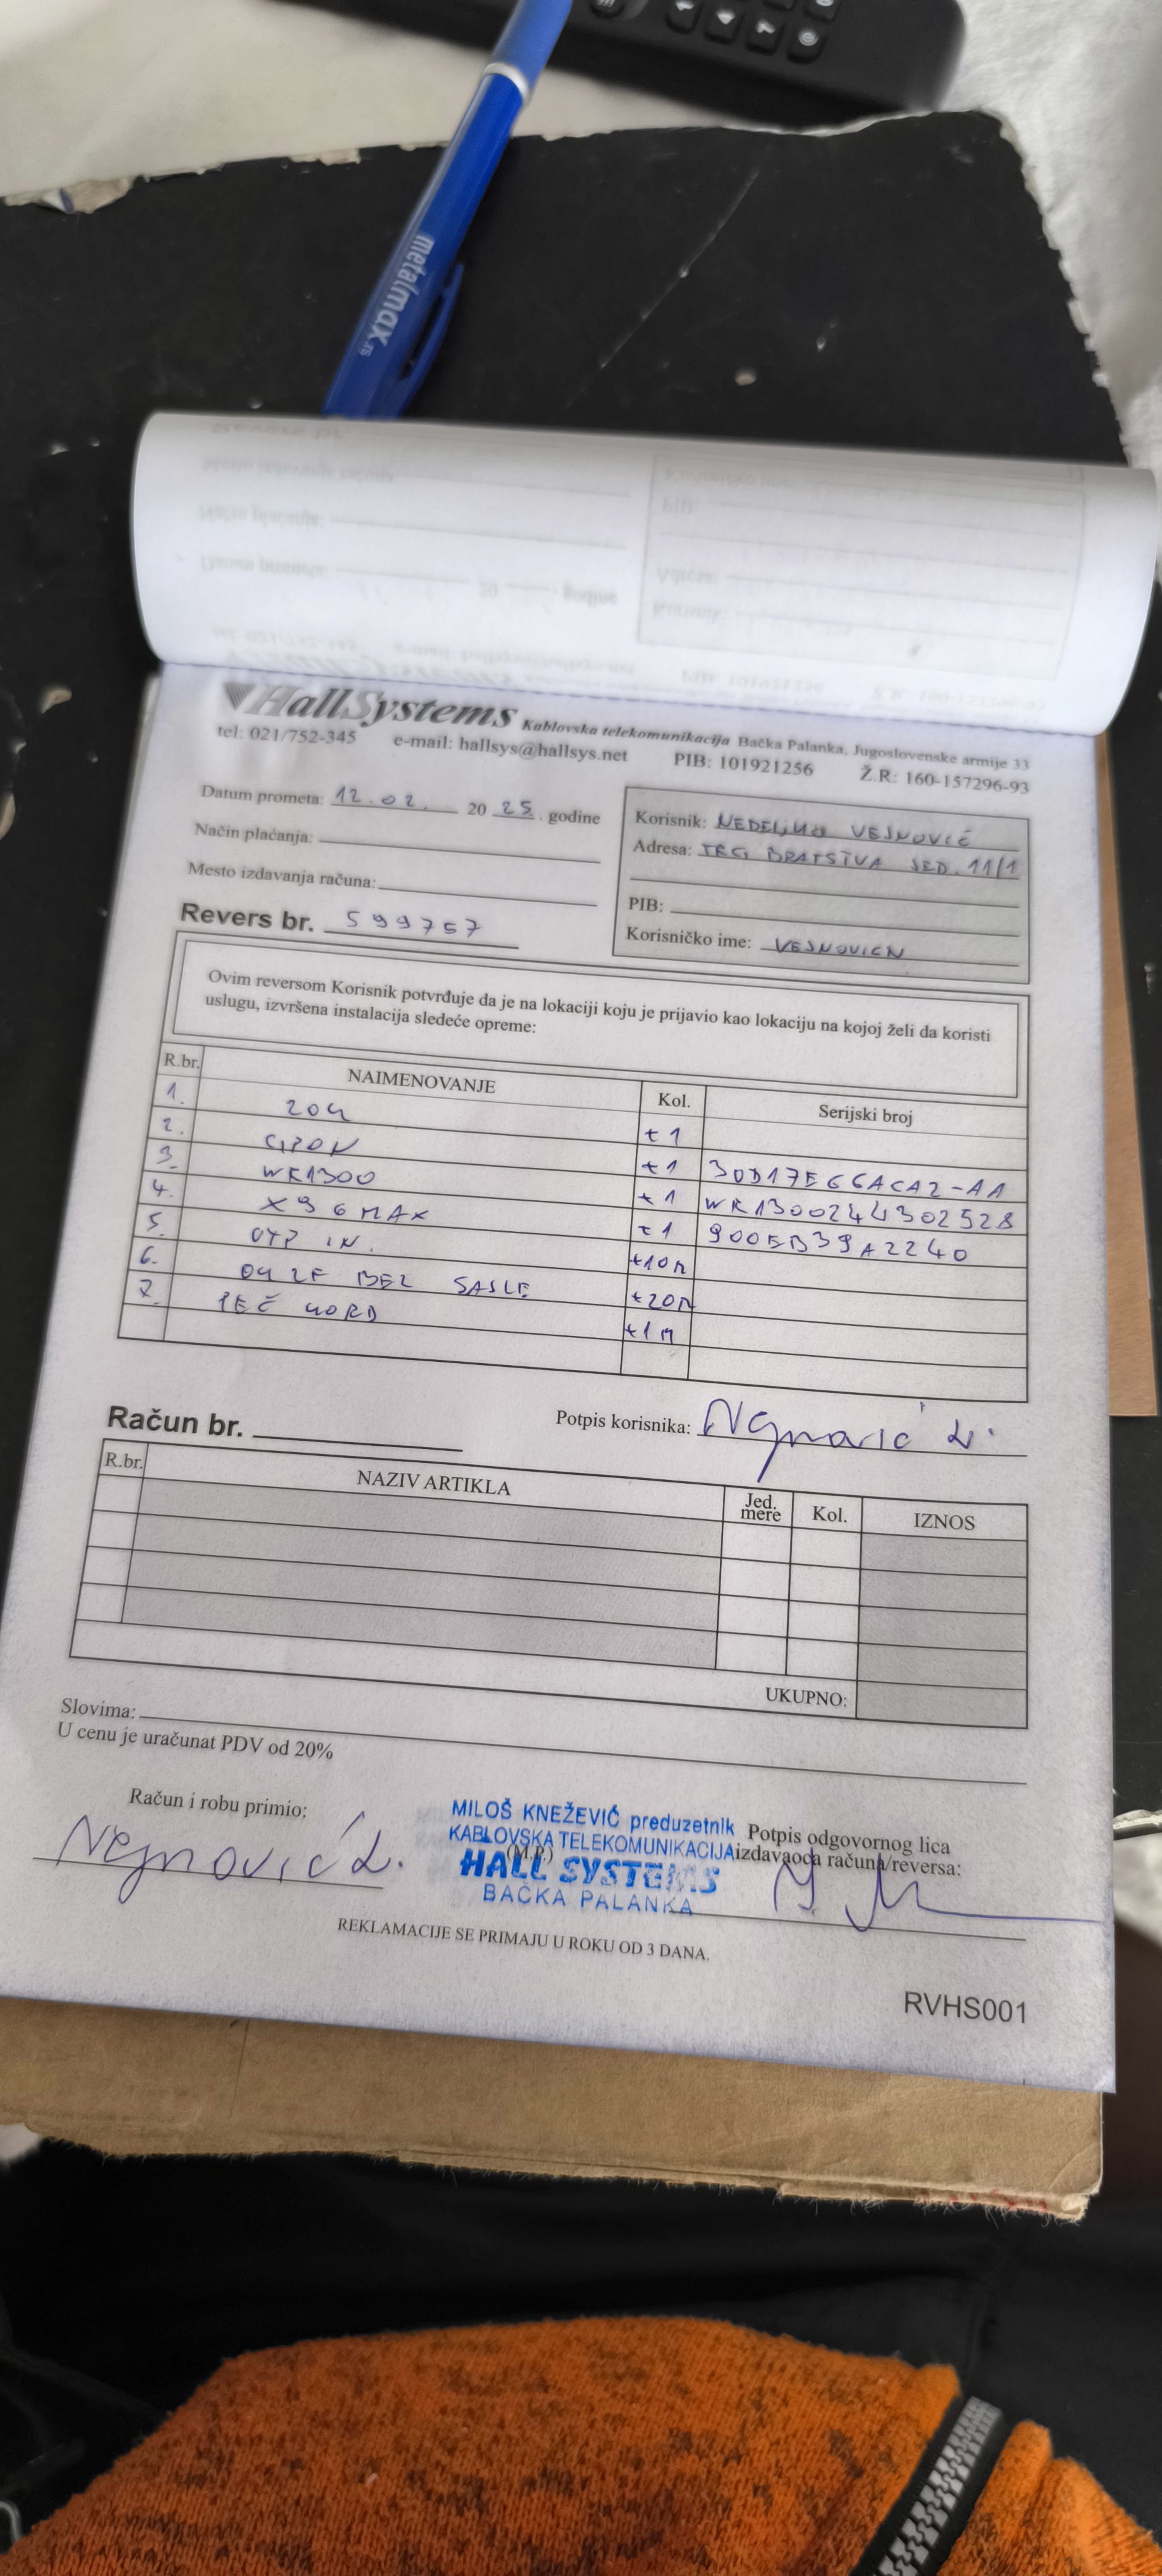 metalmax.rs
HallSystems Kablovska telekomunikacija Bačka Palanka, Jugoslovenske armije 33
tel: 021/752-345 e-mail: hallsys@hallsys.net PIB: 101921256 Ž.R: 160-157296-93
Datum prometa: 12.02. 20 25. godine
Način plaćanja:
Mesto izdavanja računa:
Revers br. 599757
Korisnik: NEDELJKO VEJNOVIĆ
Adresa: TRG BRATSTVA JED. 11/1
PIB:
Korisničko ime: VEJNOVICN
Ovim reversom Korisnik potvrđuje da je na lokaciji koju je prijavio kao lokaciju na kojoj želi da koristi
uslugu, izvršena instalacija sledeće opreme:
R.br. NAIMENOVANJE Kol. Serijski broj
1. ZOK +1
2. GPON +1 30D17E66ACA2-AA
3. WR1300 +1 WR1300244302528
4. X96MAX +1 900EB39A2240
5. UTP IN. +10M
6. OK 2F BEZ SAJLE +20M
7. PEČ KORD +1M
Potpis korisnika: Vejnović N.
Račun br.
R.br. NAZIV ARTIKLA Jed. mere Kol. IZNOS
UKUPNO:
Slovima:
U cenu je uračunat PDV od 20%
Račun i robu primio:
Vejnović N.
MILOŠ KNEŽEVIĆ preduzetnik
KABLOVSKA TELEKOMUNIKACIJA
(M.P.)
HALL SYSTEMS
BAČKA PALANKA
Potpis odgovornog lica
izdavaoca računa/reversa:
REKLAMACIJE SE PRIMAJU U ROKU OD 3 DANA.
RVHS001